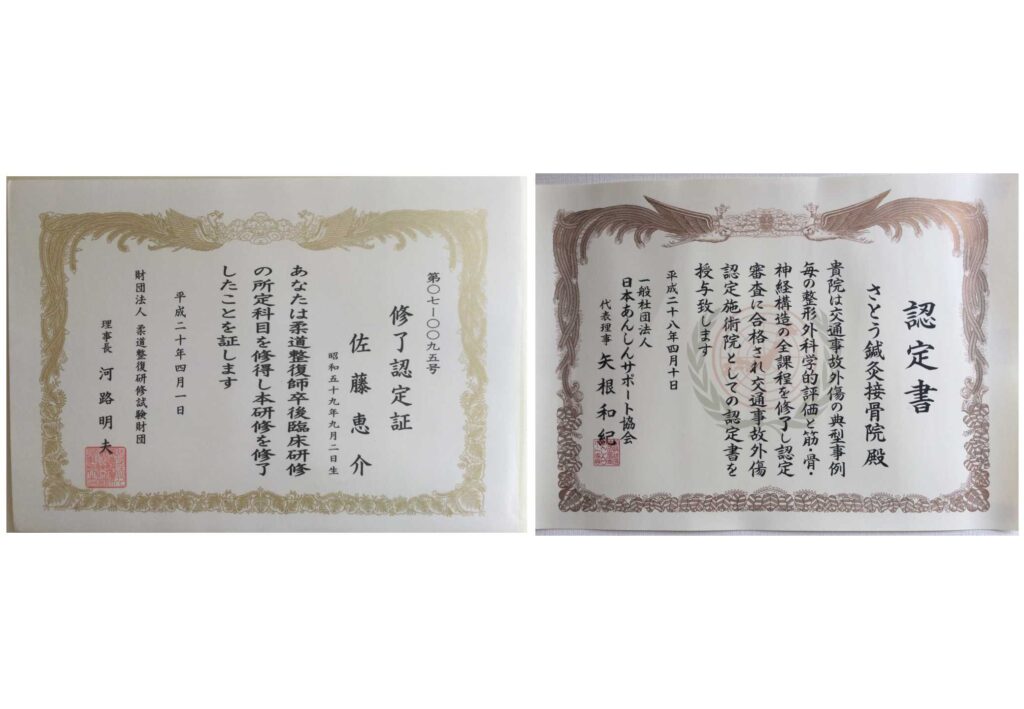 第〇七ー〇〇九五号
修了認定証
佐藤恵介
昭和五十九年九月二日生
あなたは柔道整復師卒後臨床研修
の所定科目を修得し本研修を修了
したことを証します
平成二十年四月一日
財団法人 柔道整復研修試験財団
理事長 河路明夫
認定書
さとう鍼灸接骨院殿
貴院は交通事故外傷の典型事例
毎の整形外科学的評価と筋・骨・
神経構造の全課程を修了し認定
審査に合格され交通事故外傷
認定施術院としての認定書を
授与致します
平成二十八年四月十日
一般社団法人
日本あんしんサポート協会
代表理事 矢根和紀